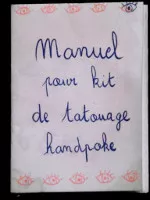 Manuel
pour kit
de tatouage
handpoke